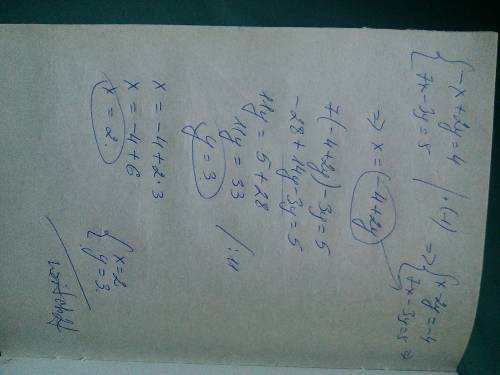 {-x+2y=4 / ·(-1) => {x-2y=-4
{7x-3y=5 {7x-3y=5 =>
=> x=(-4+2y)
7(-4+2y)-3y=5
-28+14y-3y=5
11y=5+28
11y=33 /:11
y=3
x=-4+2·3
x=-4+6
x=2.
{x=2
{y=3.